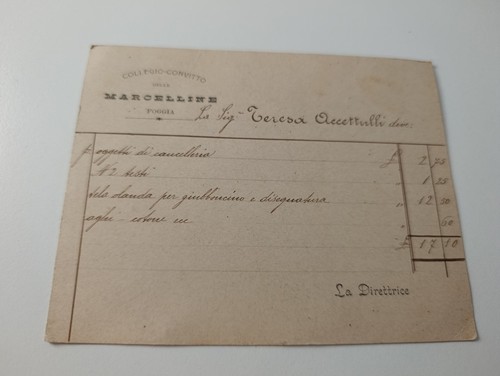 COLLEGIO-CONVITTO
DELLE
MARCELLINE
FOGGIA
La Sig.na Teresa Accettulli deve:
p. oggetti di cancelleria £ 2 75
N 2 testi " 1 25
tela olanda per giubboncino e disegnatura " 12 50
aghi - cotone ec " 60
£ 17 10
La Direttrice